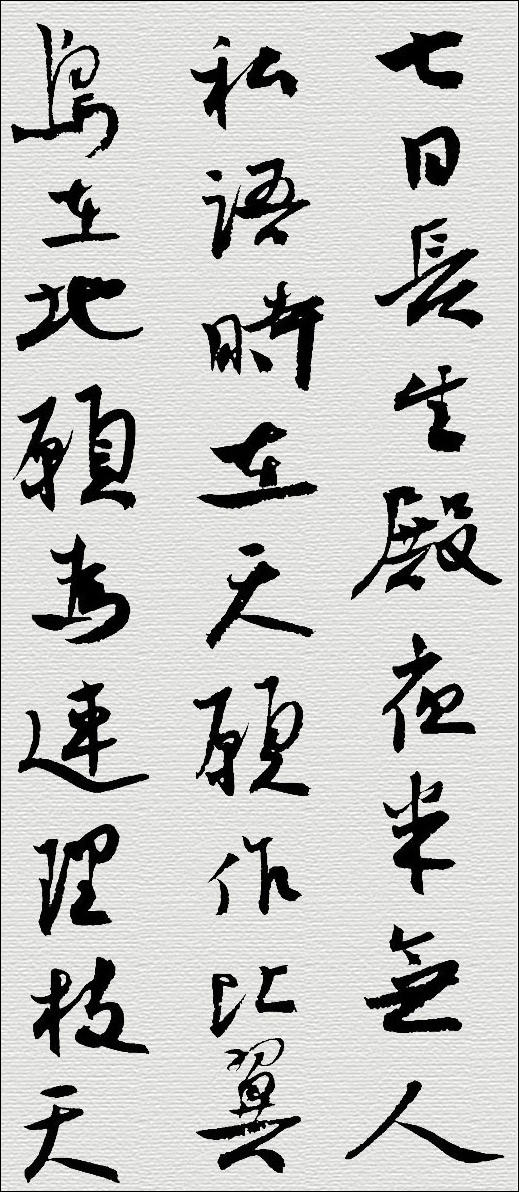 七日長生殿夜半無人
私語時在天願作比翼
鳥在地願為連理枝天